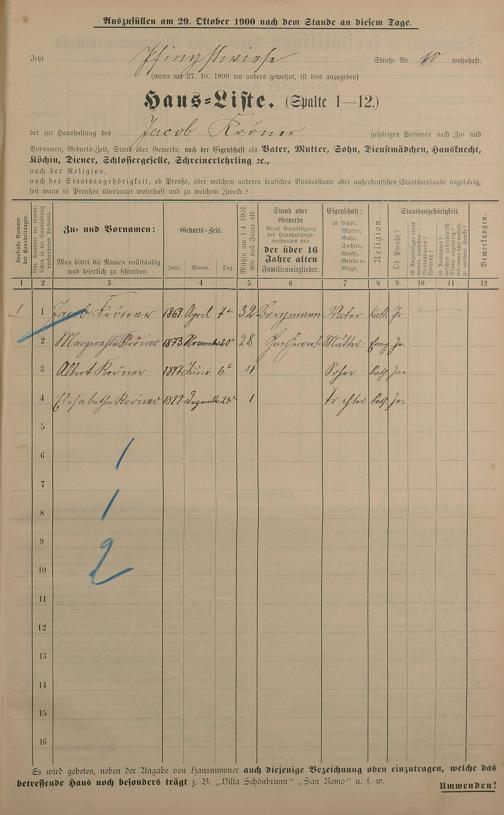 Auszufüllen am 29. Oktober 1900 nach dem Stande an diesem Tage.
Jetzt Pfingstwiese Straße Nr. 10 wohnhaft.
(wenn am 27. 10. 1899 wo anders gewohnt, ist dies anzugeben)
Haus-Liste. (Spalte 1—12.)
der zur Haushaltung des Jacob Kröner gehörigen Personen nach Zu- und
Vornamen, Geburts-Zeit, Stand oder Gewerbe, nach der Eigenschaft als Vater, Mutter, Sohn, Dienstmädchen, Hausknecht,
Köchin, Diener, Schlossergeselle, Schreinerlehrling 2c.,
nach der Religion,
nach der Staatsangehörigkeit, ob Preuße, oder welchem anderen deutschen Bundesstaate oder außerdeutschen Staatsverbande angehörig,
seit wann in Preußen überhaupt wohnhaft und zu welchem Zwecke?
Laufende Nummer der Haushaltungen.
Zu- und Vornamen:
Man bittet die Namen vollständig und leserlich zu schreiben.
Geburts-Zeit.
Jahr. Monat. Tag.
Mithin am 1/4 1901 wie viel Jahre alt.
Stand oder Gewerbe
der über 16 Jahre alten Familienmitglieder.
Eigenschaft:
ob Vater, Mutter, Sohn, Tochter, Knecht, Geselle 2c. Magd.
Religion.
Staatsangehörigkeit.
Ob Preuße?
Bemerkungen.
1 2 3 4 5 6 7 8 9 10 11 12
1 1 Jacob Kröner 1869 April 7te 32 Bergmann Vater Kath. Ja
2 Margretha Kröner 1873 November 20te 28 Mutter Evng. Ja
3 Albert Kröner Juni 6te 4 Kath. Ja
4 Elisabetha Kröner 1899 Dezember 24te 1 tochter Kath. Ja
5
6
7
8
9
10
11
12
13
14
15
16
1
1
2
Es wird gebeten, neben der Angabe von Hausnummer auch diejenige Bezeichnung oben einzutragen, welche das
betreffende Haus noch besonders trägt z. B. „Villa Schönbrunn" „San Remo" u. s. w.
Umwenden!